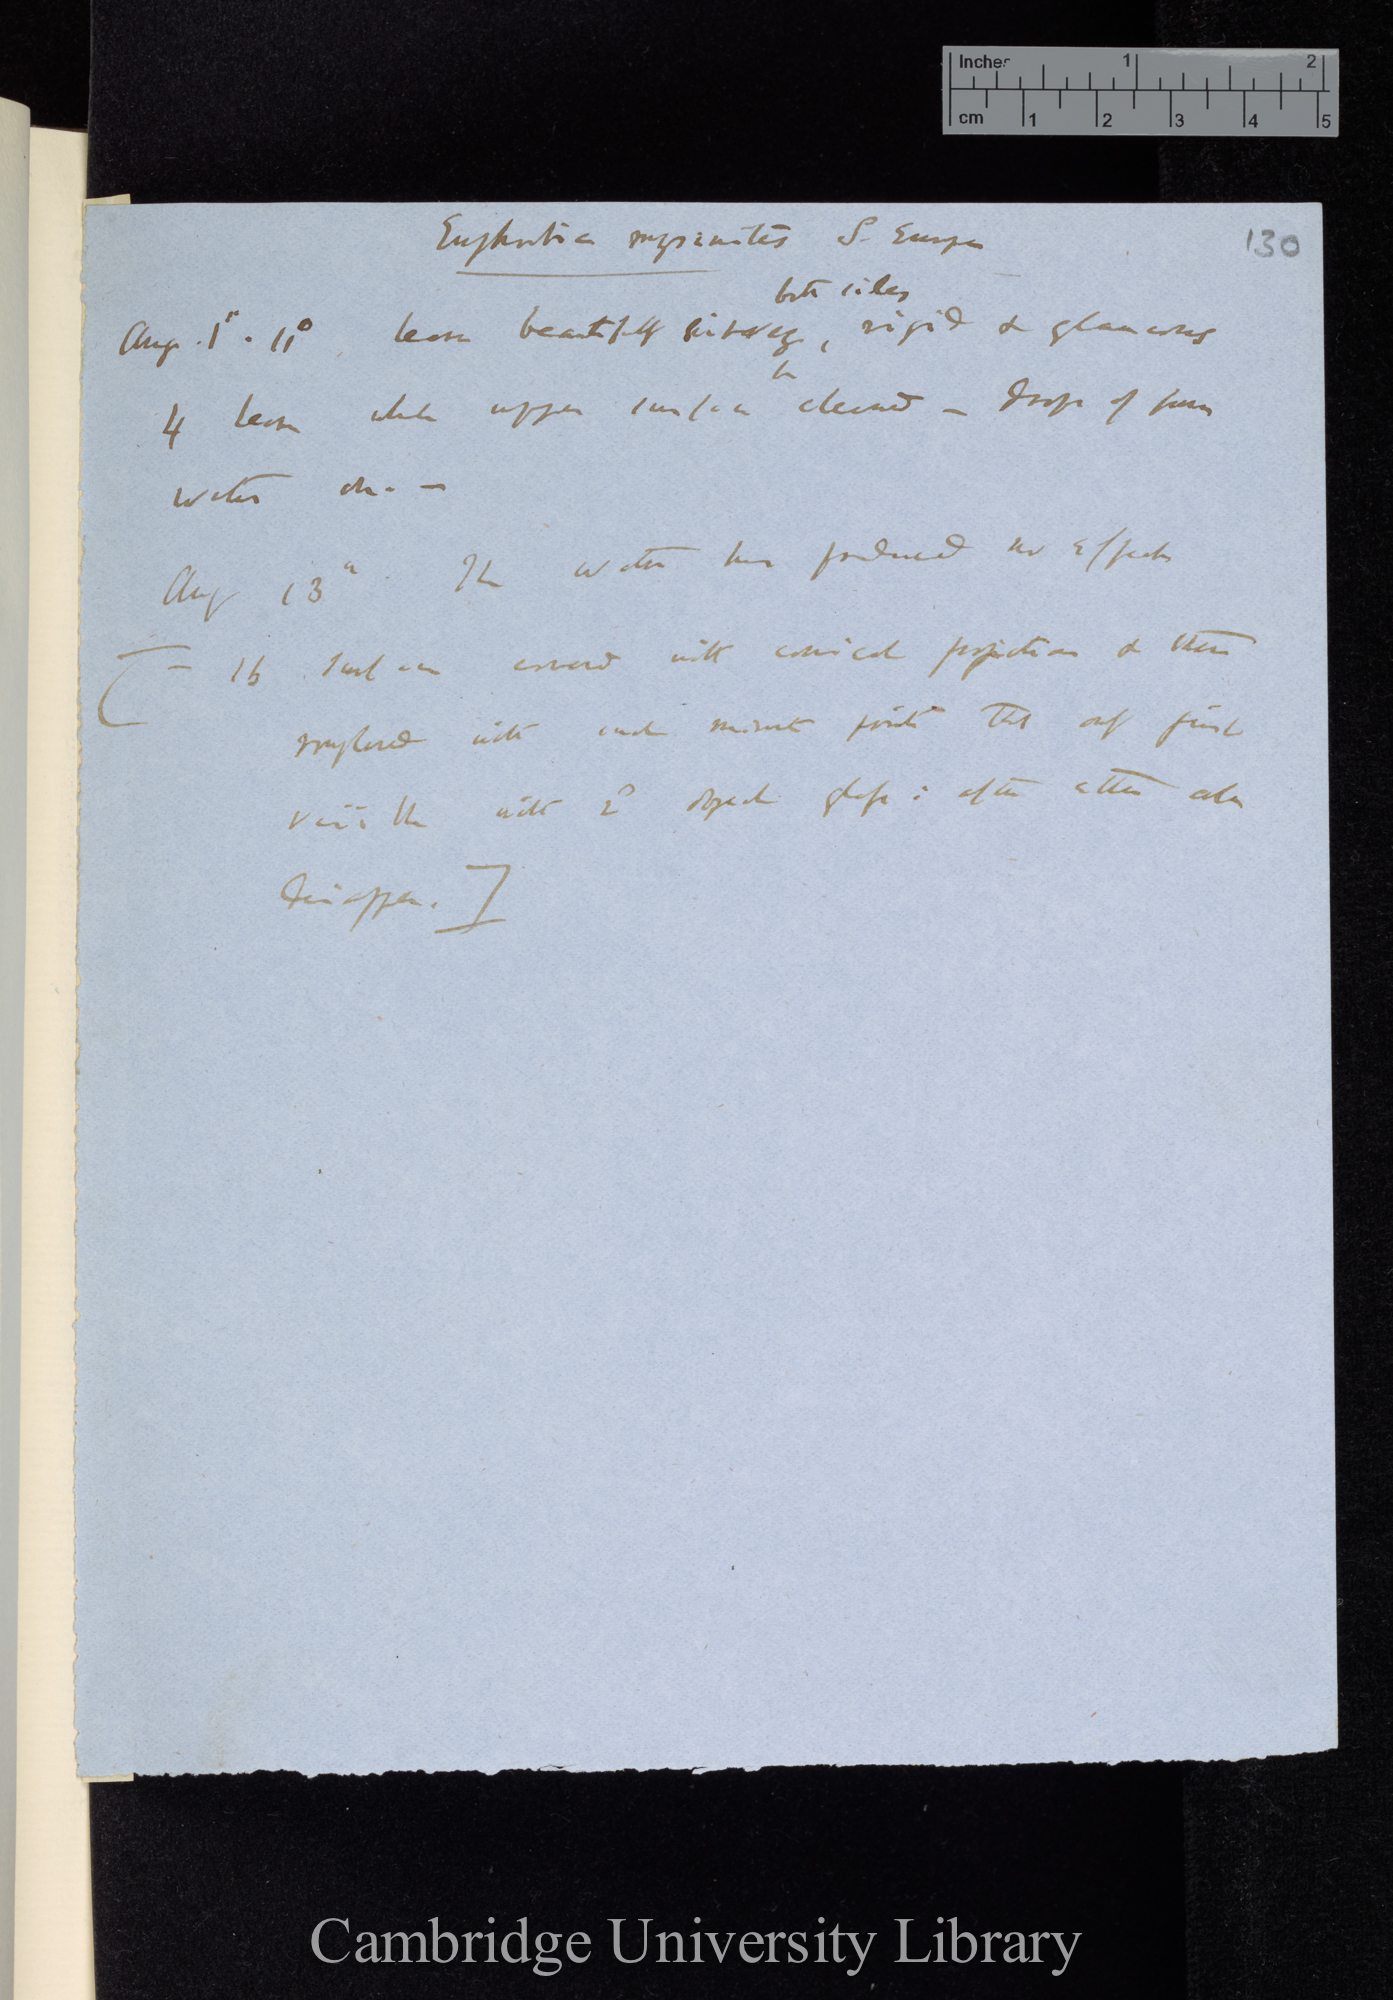 Inches 1 2
cm 1 2 3 4 5
130
Euphorbia myrsinites S. Europe
both sides
Aug. 11° leaves beautifully silvery, rigid & glaucous
4 leaves whole upper surface cleaned — drops of pure
water on. —
Aug 13th The water has produced no effect
surface covered with conical projections & these
with minute points that only just
visible with object glass: after ether also
disappear.]
Cambridge University Library